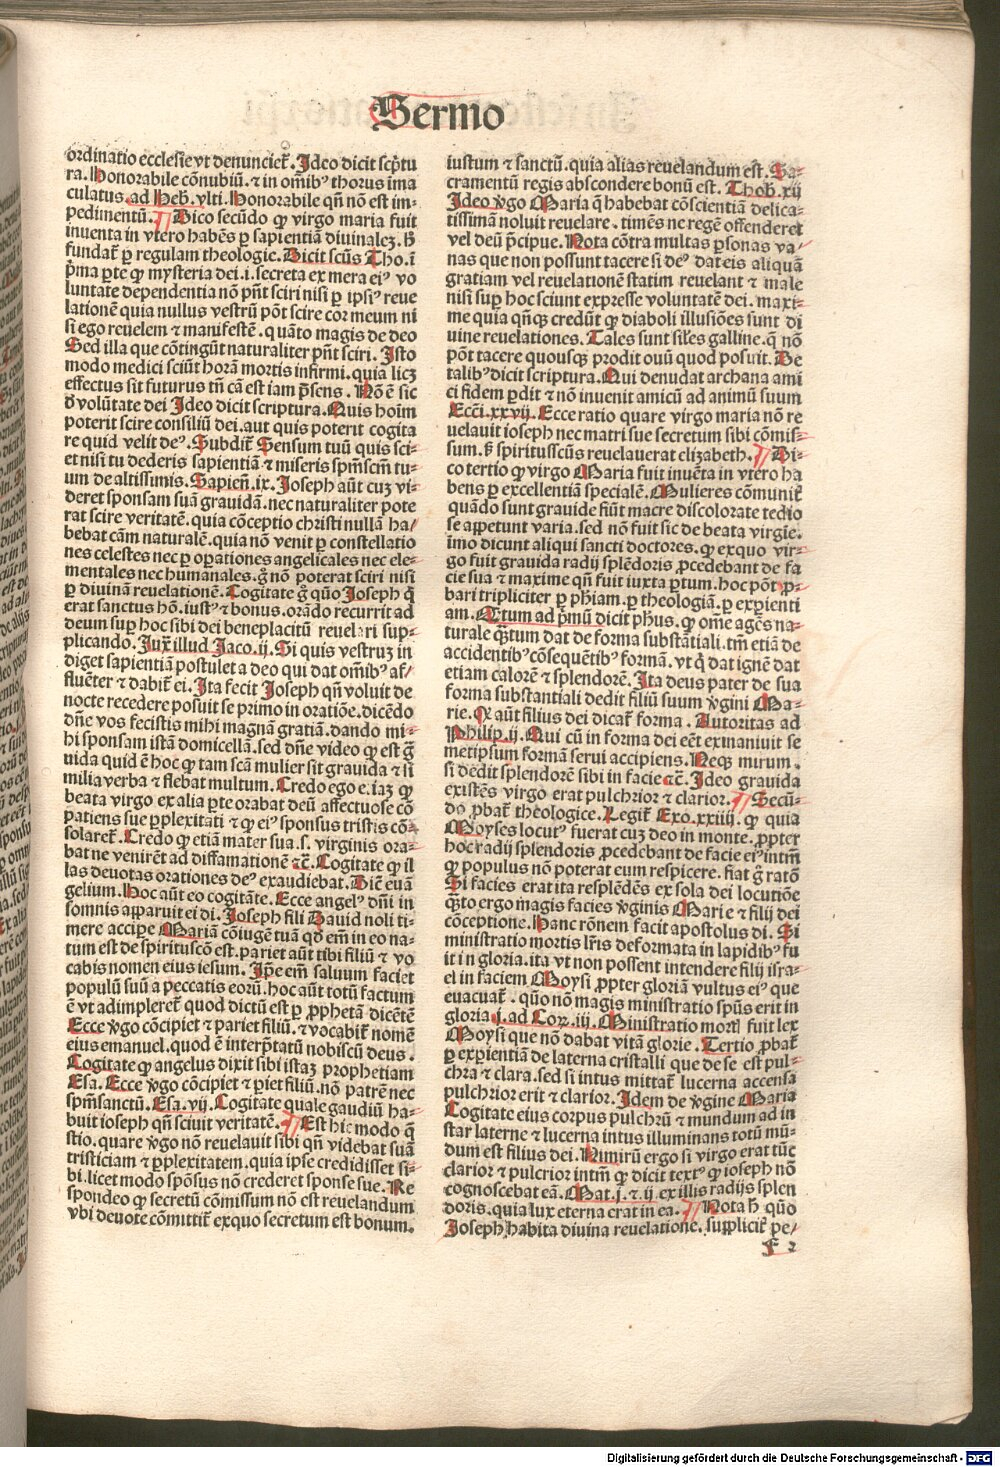 Sermo
ordinatio ecclesie vt denunciet᷑. Ideo dicit scpt̄u
ra. Honorabile cōnubiū. ⁊ in om̄ibꝰ thorus īma
culatus. ad Heb̄. vlti. Honorabile qn̄ nō est im-
pedimentū. ¶ Dico secūdo ꝙ virgo maria fuit
inuenta in vtero habēs ꝑ sapientiā diuinalez. H̄
fundat᷑ ꝑ regulam theologie. Dicit scūs Tho. ī
p̄ma ꝑte ꝙ mysteria dei .i. secreta ex mera eiꝰ vo
luntate dependentia nō pn̄t sciri nisi ꝑ ipsiꝰ reue
lationē quia nullus vestrū pōt scire cor meum ni
si ego reuelem ⁊ manifestē. quāto magis de deo
Sed illa que cōtingūt naturaliter pn̄t sciri. Isto
modo medici sciūt horā mortis infirmi. quia licz
effectus sit futurus tn̄ cā est iam p̄sens. Nō ē sic
d̄ volūtate dei Ideo dicit scriptura. Quis hoīm
poterit scire consiliū dei. aut quis poterit cogita
re quid velit deꝰ. Subdit᷑ Sensum tuū quis sci-
et nisi tu dederis sapientiā ⁊ miseris spm̄scm̄ tu-
um de altissimis. Sapien̄. ix. Joseph aūt cuz vi-
deret sponsam suā grauidā. nec naturaliter pote
rat scire veritatē. quia cōceptio christi nullā ha/
bebat cām naturalē. quia nō venit ꝑ constellatio
nes celestes nec ꝑ oꝑationes angelicales nec ele-
mentales nec humanales. g̊ nō poterat sciri nisi
ꝑ diuinā reuelationē. Cogitate g̊ quō Joseph q̄
erat sanctus hō. iustꝰ ⁊ bonus. orādo recurrit ad
deum suꝑ hoc sibi dei beneplacitū reuelari sup-
plicando. Jux̄ illud Jaco. ij. Si quis vestruz in
diget sapientiā postulet a deo qui dat om̄ibꝰ af/
fluēter ⁊ dabit᷑ ei. Ita fecit Joseph qn̄ voluit de
nocte recedere posuit se primo in oratiōe. dicēdo
dn̄e vos fecistis mihi magnā gratiā. dando mi-
hi sponsam istā domicellā. sed dn̄e video ꝙ est g̊
uida quid ē hoc ꝙ tam scā mulier sit grauida ⁊ si
milia verba ⁊ flebat multum. Credo ego e. iaz ꝙ
beata virgo ex alia ꝑte orabat deū affectuose cō
patiens sue ꝑplexitati ⁊ ꝙ eiꝰ sponsus tristis cō-
solaret᷑. Credo ꝙ etiā mater sua .s. virginis ora-
bat ne venirēt ad diffamationē ⁊c̄. Cogitate ꝙ il
las deuotas orationes deꝰ exaudiebat. Dic̄ euā
gelium. Hoc aūt eo cogitāte. Ecce angelꝰ dn̄i in
somnis apparuit ei di. Joseph fili Dauid noli ti-
mere accipe Mariā cōiugē tuā qd̄ em̄ in eo na-
tum est de spirituscō est. pariet aūt tibi filiū ⁊ vo
cabis nomen eius iesum. Ip̄e em̄ saluum faciet
populū suū a peccatis eorū. hoc aūt totū factum
ē vt adimpleret᷑ quod dictū est ꝑ ꝓphetā dicētē
Ecce v̄go cōcipiet ⁊ pariet filiū. ⁊ vocabit᷑ nomē
eius emanuel. quod ē interp̄tatū nobiscū deus.
Cogitate ꝙ angelus dixit sibi istaz prophetiam
Esa. Ecce v̄go cōcipiet ⁊ ꝑiet filiū. nō patrē nec
spm̄sanctū. Esa. vij. Cogitate quale gaudiū ha-
buit ioseph qn̄ sciuit veritatē. ¶ Est hic modo q̄
stio. quare v̄go nō reuelauit sibi qn̄ videbat suā
tristiciam ⁊ ꝑplexitatem. quia ipse credidisset si-
bi. licet modo spōsus nō crederet sponse sue. Re
spondeo ꝙ secretū cōmissum nō est reuelandum
vbi deuote cōmittit᷑ exquo secretum est bonum.
iustum ⁊ sanctū. quia alias reuelandum est. Sa-
cramentū regis abscondere bonū est. Thob. xij
Ideo v̄go Maria q̄ habebat cōscientiā delica-
tissimā noluit reuelare. timēs ne regē offenderet
vel deū p̄cipue. Nota cōtra multas ꝑsonas va/
nas que non possunt tacere si deꝰ dat eis aliquā
gratiam vel reuelationē statim reuelant ⁊ male
nisi suꝑ hoc sciunt expresse voluntatē dei. maxi-
me quia qn̄qꝫ credūt ꝙ diaboli illusiōes sunt di
uine reuelationes. Tales sunt sil̄es galline. q̄ nō
pōt tacere quousqꝫ prodit ouū quod posuit. De
talibꝰ dicit scriptura. Qui denudat archana ami
ci fidem ꝑdit ⁊ nō inuenit amicū ad animū suum
Ecc̄i. xxvij. Ecce ratio quare virgo maria nō re
uelauit ioseph nec matri sue secretum sibi cōmis-
sum. s̄ spiritusscūs reuelauerat elizabeth. ¶ Di-
co tertio ꝙ virgo Maria fuit inuēta in vtero ha
bens ꝑ excellentiā specialē. Mulieres cōmunit᷑
quādo sunt grauide fiūt macre discolorate tedio
se appetunt varia. sed nō fuit sic de beata virgīe.
īmo dicunt aliqui sancti doctores. ꝙ exquo vir-
go fuit grauida radij splēdoris ꝓcedebant de fa
cie sua ⁊ maxime qn̄ fuit iuxta ꝑtum. hoc pōt ꝓ-
bari tripliciter ꝑ phiam. ꝑ theologiā. ꝑ exꝑienti
am. Qtum ad p̄mū dicit phus. ꝙ om̄e agēs na-
turale q̄tum dat de forma substātiali. tm̄ etiā de
accidentibꝰ cōsequētibꝰ formā. vt q̄ dat ignē dat
etiam calorē ⁊ splendorē. Ita deus pater de sua
forma substantiali dedit filiū suum v̄gini Ma-
rie. Ꝙ aūt filius dei dicat᷑ forma. Autoritas ad
Philip. ij. Qui cū in forma dei eēt exinaniuit se
metipsum formā serui accipiens. Neqꝫ mirum.
si dedit splendorē sibi in facie ⁊c̄. Ideo grauida
existēs virgo erat pulchrior ⁊ clarior. ¶ Secū-
do ꝓbat᷑ theologice. Legit᷑ Exo. xxiiij. ꝙ quia
Moyses locutꝰ fuerat cuz deo in monte. ꝓpter
hoc radij splendoris ꝓcedebant de facie eiꝰ intm̄
ꝙ populus nō poterat eum respicere. fiat g̊ ratō
Si facies erat ita resplēdēs ex sola dei locutiōe
q̄to ergo magis facies v̄ginis Marie ⁊ filij dei
cōceptione. Hanc rōnem facit apostolus di. Si
ministratio mortis lr̄is deformata in lapidibꝰ fu
it in gloria. ita vt non possent intendere filij isra-
el in faciem Moysi ꝓpter gloriā vultus eiꝰ que
euacuat᷑. quō nō magis ministratio spūs erit in
gloria .j. ad Cor. iij. Ministratio mort̄ fuit lex
Moysi que nō dabat vitā glorie. Tertio ꝓbat᷑
ꝑ exꝑientiā de laterna cristalli que de se est pul-
chra ⁊ clara. sed si intus mittat᷑ lucerna accensa
pulchrior erit ⁊ clarior. Idem de v̄gine Maria
Cogitate eius corpus pulchrū ⁊ mundum ad in
star laterne ⁊ lucerna intus illuminans totū mū-
dum est filius dei. Nimirū ergo si virgo erat tūc
clarior ⁊ pulcrior intm̄ ꝙ dicit textꝰ ꝙ ioseph nō
cognoscebat eā. Mat. j. ⁊ ij. ex illis radijs splen
doris. quia lux eterna erat in ea. ¶ Nota h̄ quō
Joseph habita diuina reuelatione. supplicit᷑ pe/
f 2
Digitalisierung gefördert durch die Deutsche Forschungsgemeinschaft - DFG